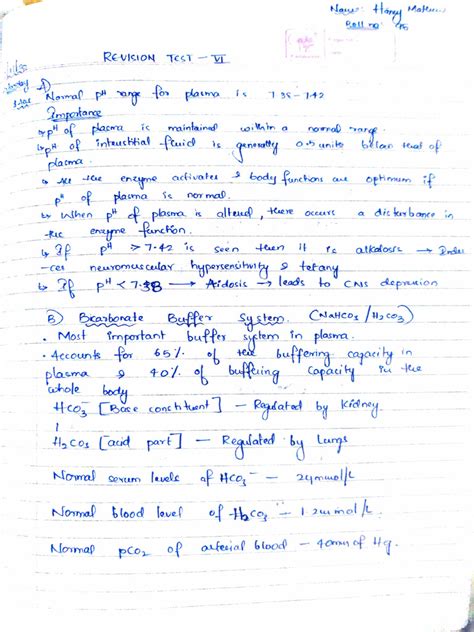 Name: Harry
Roll no:
REVISION TEST - VI
A)
Normal pH range for plasma is 7.38 - 7.42
Importance
↳ pH of plasma is maintained within a normal range.
↳ pH of interstitial fluid is generally 0.5 units below that of
plasma.
↳ All the enzyme activates & body functions are optimum if
pH of plasma is normal.
↳ When pH of plasma is altered, there occurs a disturbance in
the enzyme function.
↳ If pH > 7.42 is seen then it is alkalosis → Indu-
ces neuromuscular hypersensitivity & tetany
↳ If pH < 7.38 → Acidosis → leads to CNS depression
B) Bicarbonate Buffer System. (NaHCO3 / H2CO3)
• Most important buffer system in plasma.
• Accounts for 65% of the buffering capacity in
plasma & 40% of buffering capacity in the
whole body
HCO3⁻ [Base constituent] — Regulated by Kidney.
H2CO3 [acid part] — Regulated by Lungs
Normal serum levels of HCO3⁻ - 24mmol/L
Normal blood level of H2CO3 - 1.2mmol/L
Normal pCO2 of arterial blood - 40mm of Hg.